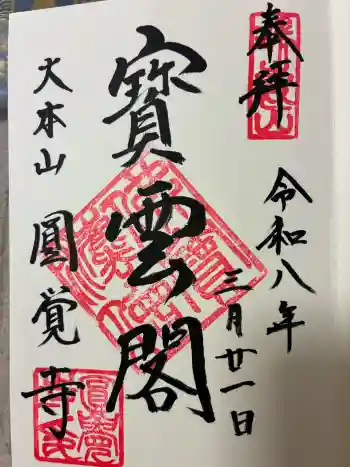 奉拝
令和八年
三月廿一日
寶雲閣
大本山
圓覚寺